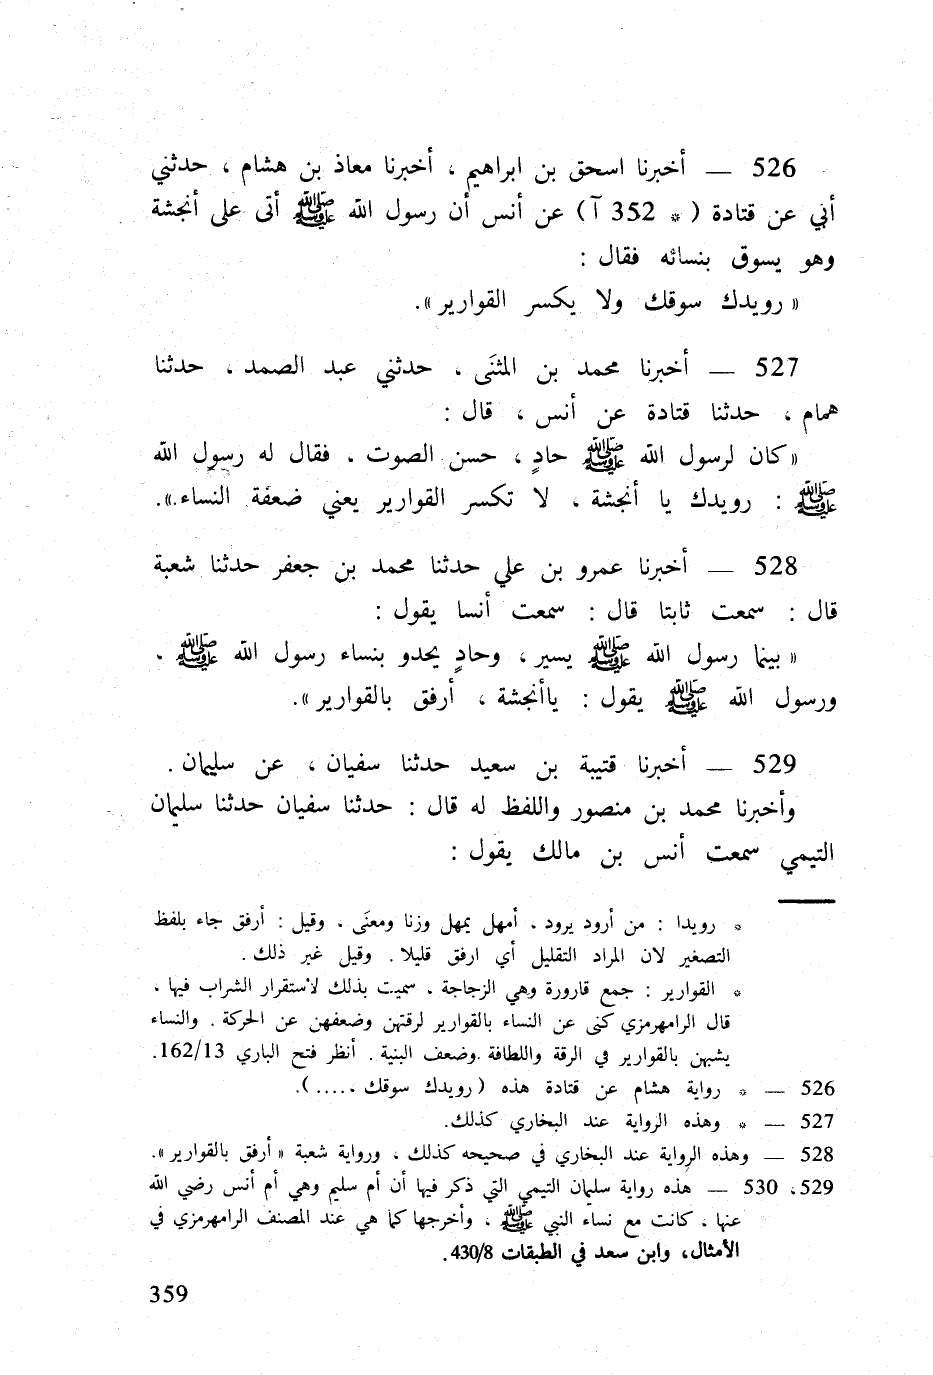 526 — أخبرنا اسحق بن ابراهيم ، أخبرنا معاذ بن هشام ، حدثني
أبي عن قتادة ( * 352 آ ) عن أنس أن رسول الله ﷺ أتى على أنجشة
وهو يسوق بنسائه فقال :
« رويدك سوقك ولا يكسر القوارير ».
527 — أخبرنا محمد بن المثنَى ، حدثني عبد الصمد ، حدثنا
همام ، حدثنا قتادة عن أنس ، قال :
«كان لرسول الله ﷺ حادٍ ، حسن الصوت . فقال له رسول الله
ﷺ : رويدك يا أنجشة ، لا تكسر القوارير يعني ضعفة النساء.».
528 — أخبرنا عمرو بن علي حدثنا محمد بن جعفر حدثنا شعبة
قال : سمعت ثابتا قال : سمعت أنسا يقول :
« بينما رسول الله ﷺ يسير ، وحادٍ يحدو بنساء رسول الله ﷺ .
ورسول الله ﷺ يقول : ياأنجشة ، أرفق بالقوارير ».
529 — أخبرنا قتيبة بن سعيد حدثنا سفيان ، عن سليمان .
وأخبرنا محمد بن منصور واللفظ له قال : حدثنا سفيان حدثنا سليمان
التيمي سمعت أنس بن مالك يقول :
* رويدا : من أرود يرود . أمهل يمهل وزنا ومعنَى . وقيل : أرفق جاء بلفظ
التصغير لان المراد التقليل أي ارفق قليلا . وقيل غير ذلك .
* القوارير : جمع قارورة وهي الزجاجة . سميت بذلك لاستقرار الشراب فيها ،
قال الرامهرمزي كنى عن النساء بالقوارير لرقتهن وضعفهن عن الحركة . والنساء
يشبهن بالقوارير في الرقة واللطافة .وضعف البنية . أنظر فتح الباري 162/13.
526 — * رواية هشام عن قتادة هذه ( رويدك سوقك ......).
527 — * وهذه الرواية عند البخاري كذلك.
528 — وهذه الرواية عند البخاري في صحيحه كذلك ، ورواية شعبة « أرفق بالقوارير ».
529، 530 — هذه رواية سليمان التيمي التي ذكر فيها أن أم سليم وهي أم أنس رضي الله
عنها ، كانت مع نساء النبي ﷺ ، وأخرجها كما هي عند المصنف الرامهرمزي في
الأمثال، وابن سعد في الطبقات 430/8 .
359